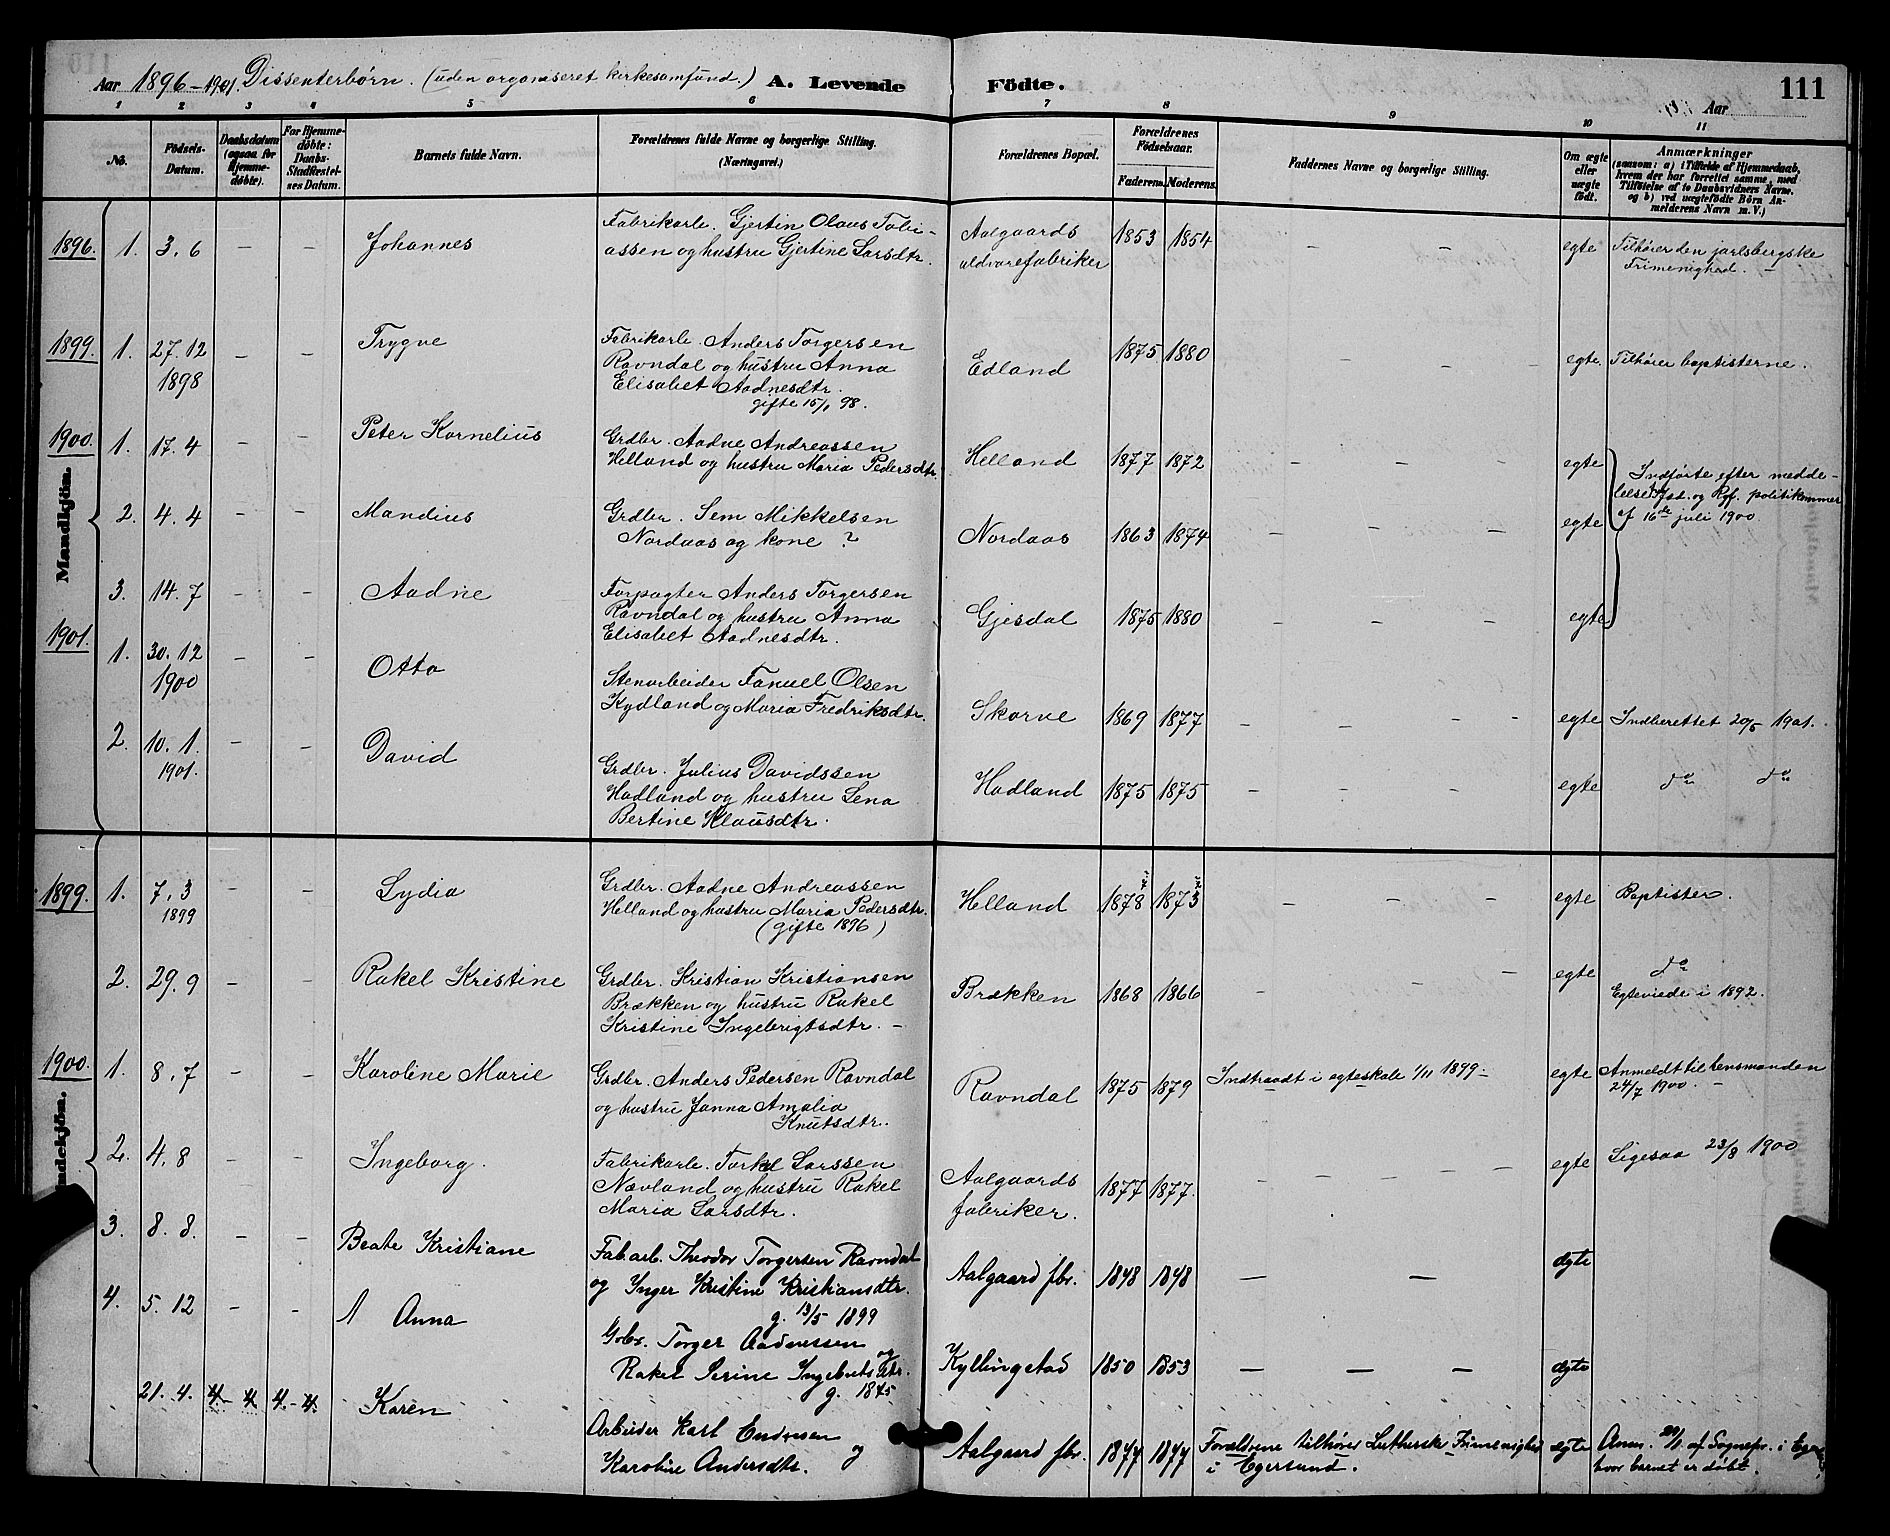 110
Aar 1896-1901. Dissenterbørn. (uden organiseret kirkesamfund.) A. Levende Födte. Aar 111
1 2 3 4 5 6 7 8 9 10 11
No. Födsels-Datum. Daabsdatum (ogsaa for Hjemme-döbte). For Hjemme-döbte: Daabs-Stadfæstel-ses Datum. Barnets fulde Navn. Forældrenes fulde Navne og borgerlige Stilling. (Næringsvei.) Forældrenes Bopæl. Forældrenes Födselsaar. Faderens. Moderens. Faddernes Navne og borgerlige Stilling. Om ægte eller uægte födt. Anmærkninger
(saasom: a) i Tilfælde af Hjemmedaab,
hvem der har forrettet samme, med
Tilföielse af to Daabsvidners Navne.
og b) ved uægtefödte Börn An-
melderens Navn m. V.)
Mandkjön.
1896. 1. 3.6 - - Johannes Fabrikarb. Gjertin Olaus Tobi-
assen og hustru Gjertine Larsdtr. Aalgaards
uldvarefabriker 1853 1854 - - egte Tilhører den jarlsbergske
Frimenighed. -
1899. 1. 27.12
1898 - - Trygve Fabrikarb. Anders Torgersen
Ravndal og hustru Anna
Elisabet Aadnesdtr.
gifte 15/1 98. Edland 1875 1880 - - - egte. Tilhører baptisterne.
1900. 1. 17.4 - - Peter Kornelius Grdbr. Aadne Andreassen
Helland og hustru Maria Pedersdtr. Helland 1877 1872 - - - egte Indførte efter medde-
lelse fra Jæd. og Ryf. politikammer
af 16de juli 1900.
2. 4.4 - - Mandius Grdbr. Sem Mikkelsen
Nordaas og kone ? Nordaas 1863 1874 - - - egte
3. 14.7 - - Aadne Forpagter Anders Torgersen
Ravndal og hustru Anna
Elisabet Aadnesdtr. Gjesdal 1875 1880 - - - egte
1901. 1. 30.12
1900 - - Otto Stenarbeider Fanuel Olsen
Kydland og Maria Fredriksdtr. Skurve 1869 1877 - - - - egte Indberettet 20/5 1901.
2. 10.1.
1901. - - David Grdbr. Julius Davidssen
Hadland og hustru Lena
Bertine Klausdtr. Hadland 1875 1875 - - - egte do do
1899. 1. 7.3
1899 - - Lydia Grdbr. Aadne Andreassen
Helland og hustru Maria Pedersdtr.
(gifte 1896) Helland 1878 1873 - - - egte Baptister.
2. 29.9 - - Rakel Kristine Grdbr. Kristian Kristiansen
Brækken og hustru Rakel
Kristine Ingebrigtsdtr. - Brækken 1868 1866 - - - egte do
Egteviede i 1892.
1900. 1. 8.7 - - Karoline Marie Grdbr. Anders Pedersen Ravndal
og hustru Janna Amalia
Knutsdtr. Ravndal 1875 1879 Indtraadt i egteskab 1/11 1899. egte Anmeldt til lensmanden
24/7 1900. -
2. 4.8 - - Ingeborg. Fabrikarb. Torkel Larssen
Nævland og hustru Rakel
Maria Larsdtr. Aalgaards
fabriker. 1877 1877. - - - - - egte Ligesaa 23/8 1900
3. 8.8. - - Beate Kristiane Fabarb. Theodor Torgersen Ravndal
og Inger Kristine Kristiansdtr.
g. 13/5 1899 Aalgaard fbr. 1848 1848 - - ægte
4. 5.12 - - Anna Gbr. Torger Aadnessen og
Rakel Serine Ingebrets dtr.
g. 1875 Kyllingstad 1850 1853 - - - ægte
21.4. 4.-4. 4.-4. Karen Arbeider Karl Endresen og
Karoline Andersdtr. Aalgaard fbr. 1877 1877 Forældrene tilhører Lutherske Frimenighed
i Egersund. ægte Anm. af Sognepr. i
hvor barnet er døbt.